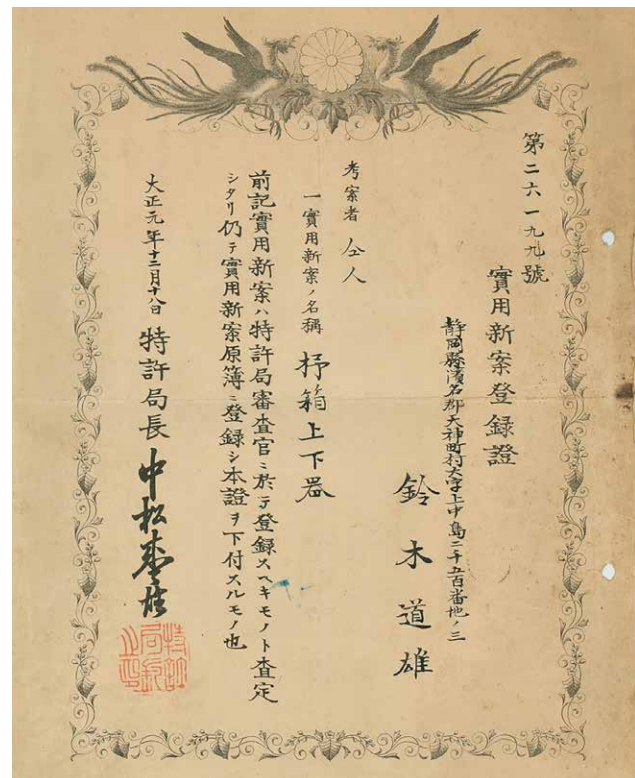 第二六一九九號
實用新案登録證
静岡縣濱名郡天神町村大字上中島二千五百番地ノ三
鈴木道雄
考案者 仝人
一實用新案ノ名稱 杼箱上下器
前記實用新案ハ特許局審査官ニ於テ登録スヘキモノト査定
シタリ仍テ實用新案原簿ニ登録シ本證ヲ下付スルモノ也
大正元年十二月十八日 特許局長 中松盛雄
特許局長之印